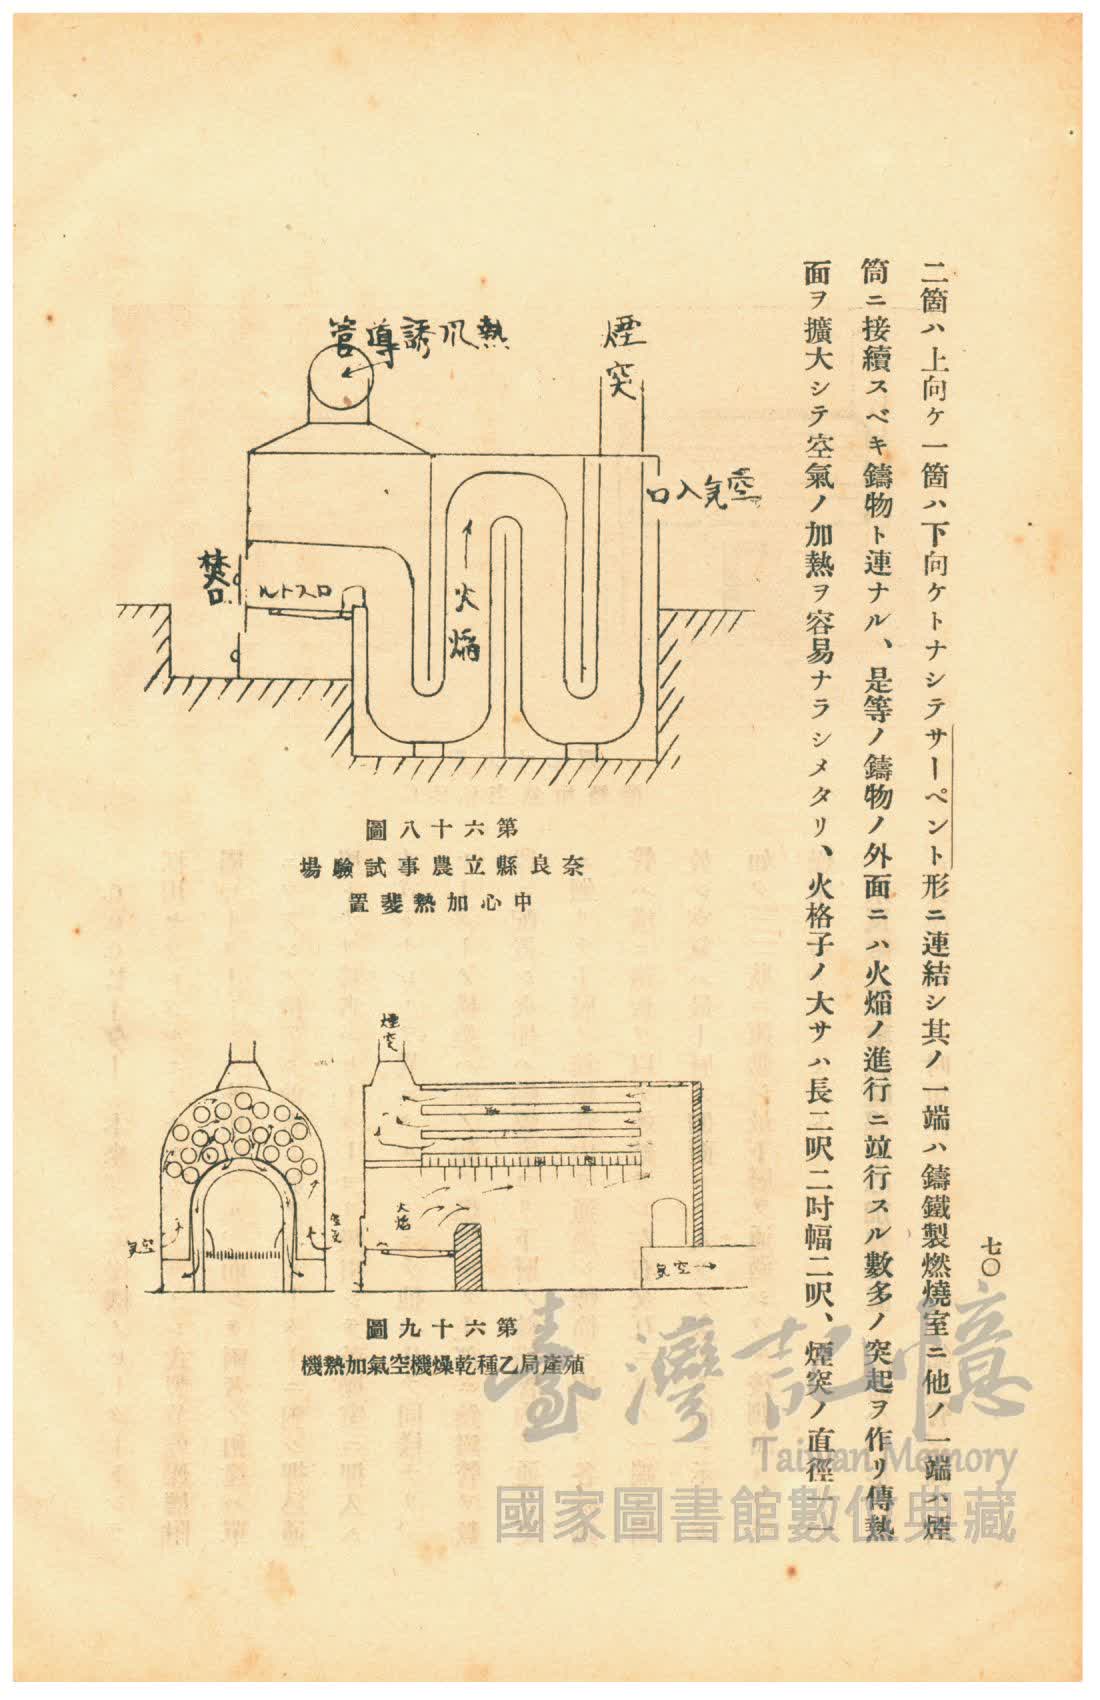 七〇
二箇ハ上向ケ一箇ハ下向ケトナシテサーペント形ニ連結シ其ノ一端ハ鑄鐵製燃燒室ニ他ノ一端ハ煙
筒ニ接續スベキ鑄物ト連ナル、是等ノ鑄物ノ外面ニハ火焰ノ進行ニ竝行スル數多ノ突起ヲ作リ傳熱
面ヲ擴大シテ空氣ノ加熱ヲ容易ナラシメタリ、火格子ノ大サハ長二呎二吋幅二呎、煙突ノ直徑一一
煙突
熱爪誘導管
空気入口
焚口
ロストル
火焔
第六十八圖
奈良縣立農事試驗場
中心加熱裝置
煙突
火焔
空気
空気
空気
第六十九圖
殖產局乙種乾燥機空氣加熱機
臺灣記憶
Taiwan Memory
國家圖書館數位典藏